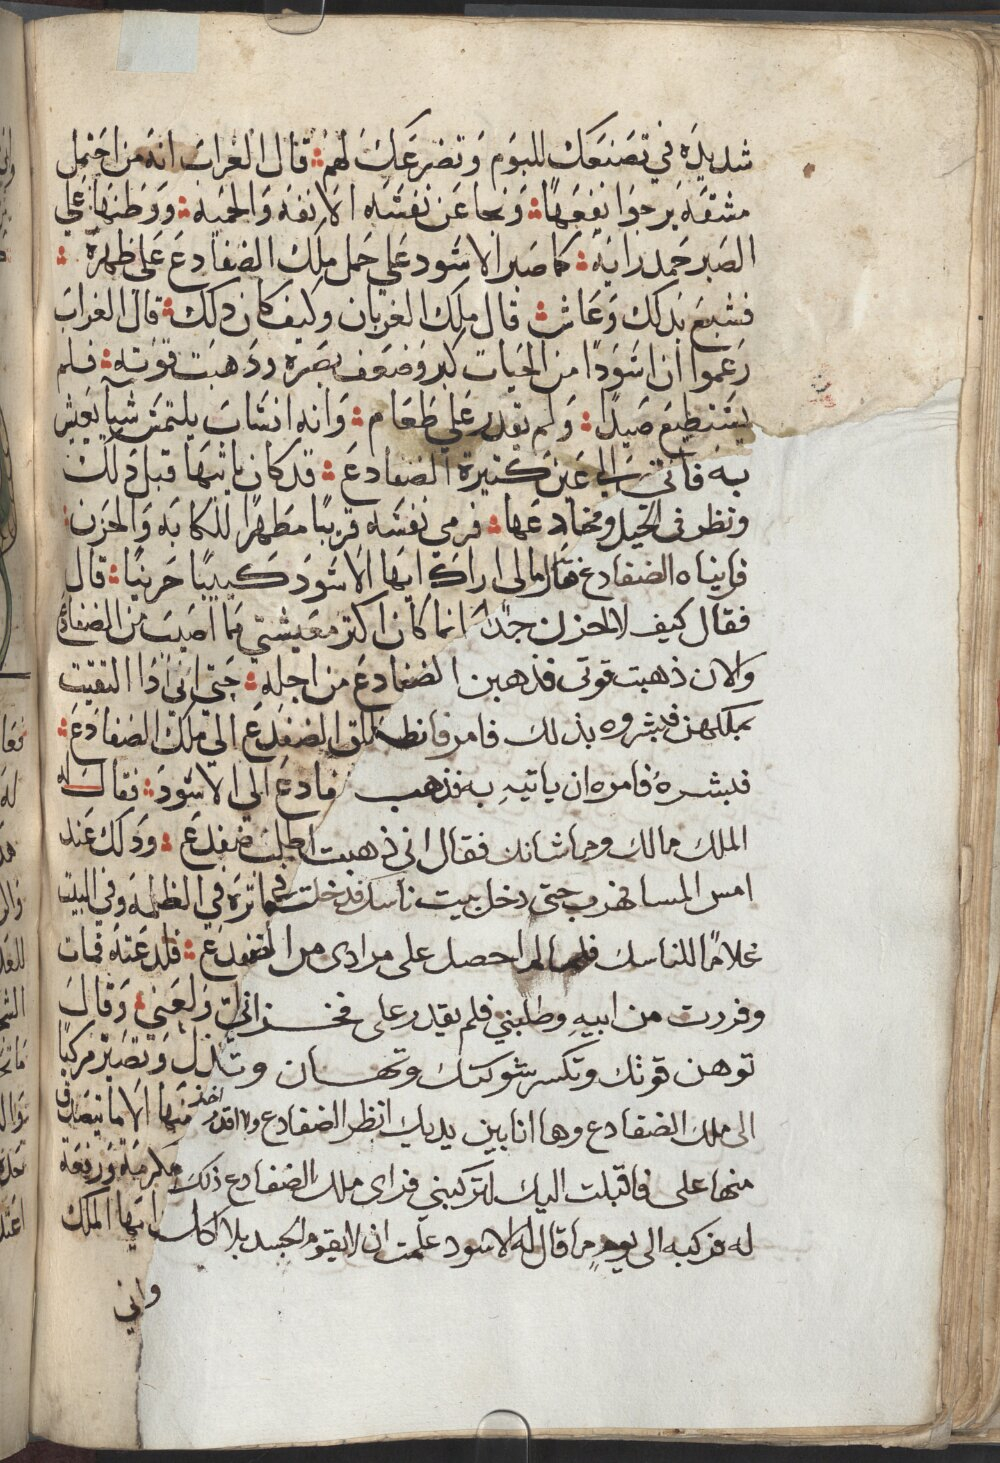 شديدة في تصنعك للبوم وتضرعك لهم قال الغراب انه من احتمل
مشقة يرجوا نفعها ونحا عن نفسه الانفة والحمية ووطنها علي
الصبر حمد رايه كما صبر الاسود علي حمل ملك الضفادع على ظهره
فشبع بذلك وعاش قال ملك الغربان وكيف كان ذلك قال الغراب
زعموا ان اسودا من الحيات كبر وضعف بصره وذهبت قوته فلم
يستطيع صيدا ولم يقدر علي طعام وانه انساب يلتمس شيا يعيش
به فاتى الى عين كثيرة الضفادع قد كان ياتيها قبل ذلك
ونظر فى الحيل ومخادعها فرمى نفسه قريبا مظهرا للكابه والحزن
فاتيناه الضفادع فقال مالى اراك ايها الاسود كييبا حزينا قال
فقال كيف لا احزن جدا انما كان اكثر معيشتي مما اصيب من الضفادع
والان ذهبت قوتى فذهبن الضفادع من اجله حتى انى اذا التقيت
بملكهن فبشروه بذلك فامر فانطلق الضفدع الي ملك الضفادع
فبشره فامره ان ياتيه به فذهب فادع الي الاسود فقال له
الملك مالك وما شانك فقال انى ذهبت اطلب ضفدع وذلك عند
امس المسا فهرب حتى دخل بيت ناسك فدخلت في اثره في الظلمه وفي البيت
غلاما للناسك فلما لم احصل على مرادى من الضفدع فلدغته فمات
وفررت من ابيه وطلبني فلم يقدر على ولعنني وقال
توهن قوتك وتكسر شوكتك وتهان وتذل وتصير مركبا
الى ملك الضفادع وها انا بين يديك انظر الضفادع ولا اقدر اخذ منها الا ما تتصدق
منها على فاقبلت اليك لتركبني فراى ملك الضفادع ذلك مكرمة ورفعة
له فركبه الى يوم ما قال له الاسود علمت ان لا يقوم الجسد بلا اكل ايها الملك
واني